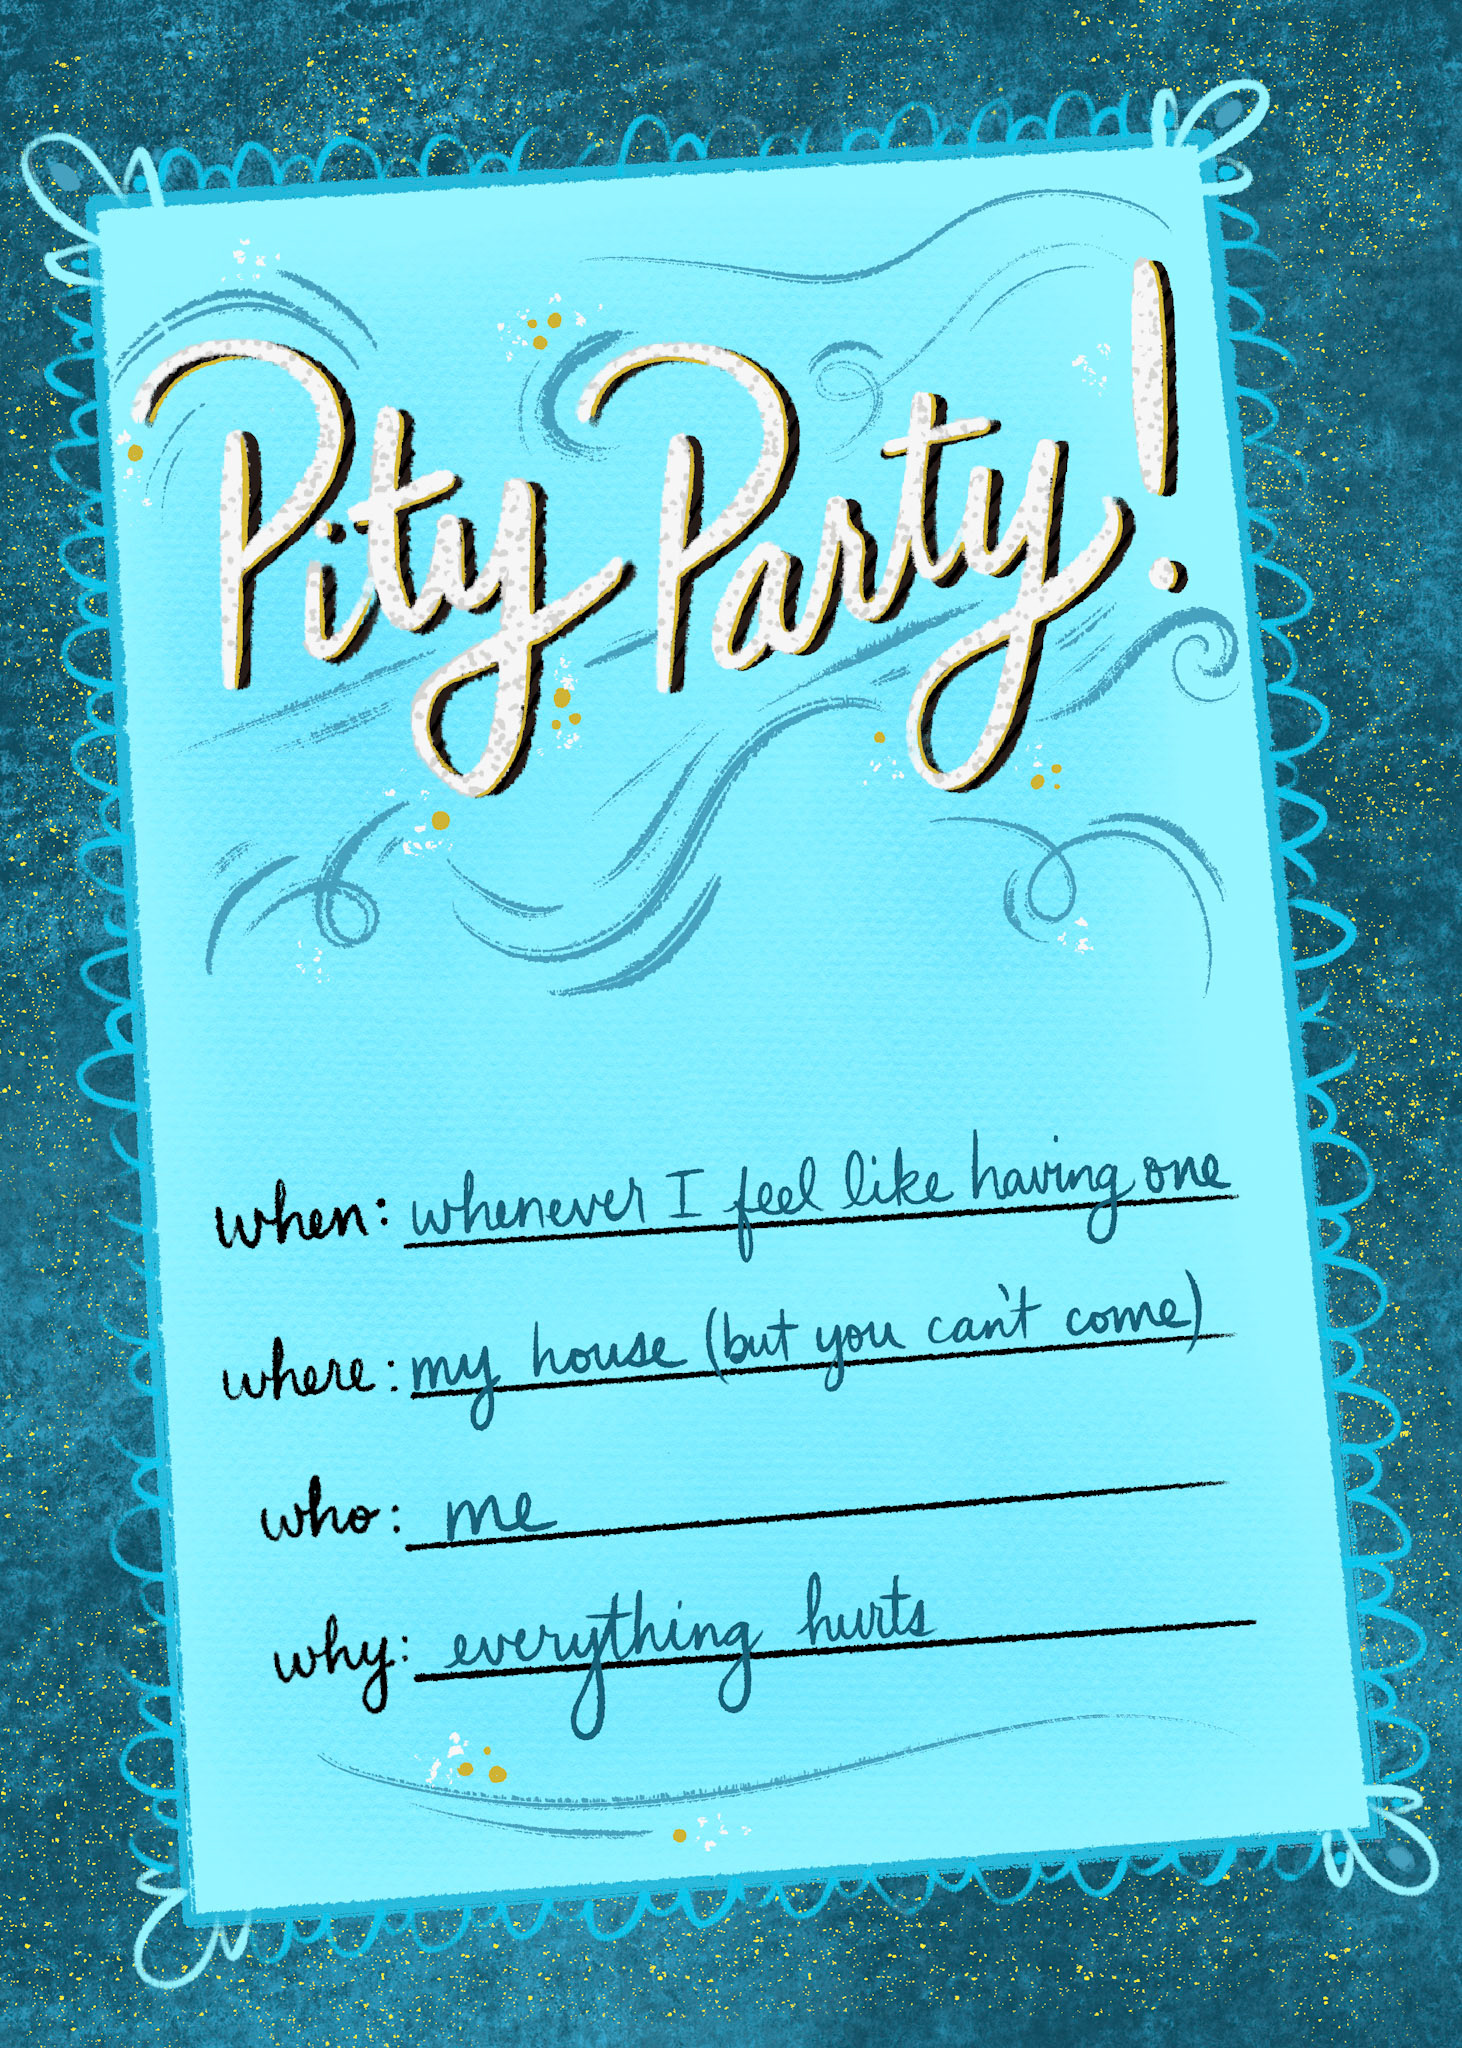 Pity Party!
when: whenever I feel like having one
where: my house (but you can't come)
who: me
why: everything hurts